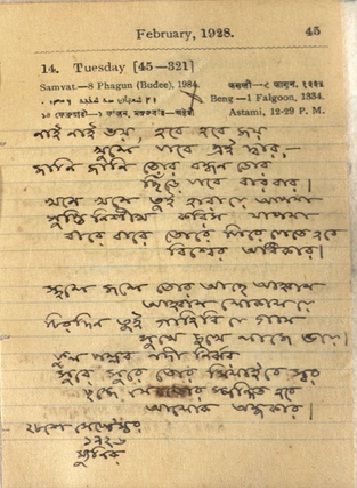 February, 1928. 45
14. Tuesday [45—321]
Samvat.—8 Phagun (Budee), 1984.
Beng—1 Falgoon, 1334.
Astami, 12-29 P. M.
নাই নাই ভয়, হবে হবে জয়
খুলে যাবে এই দ্বার,—
জানি জানি তোর বন্ধন ডোর
ছিঁড়ে যাবে বারবার।
খনে খনে তুই হারায়ে আপনা
সুপ্তি নিশীথ করিস যাপনা
বারে বারে তোরে ফিরে পেতে হবে
বিশ্বের অধিকার।
স্থলে জলে তোর আছে আহ্বান
আহ্বান লোকালয়ে
চিরদিন তুই গাহিবি যে গান
সুখে দুখে লাজে ভয়ে।
ফুল পল্লব নদী নির্ঝর
সুরে সুরে তোর মিলাইবে স্বর
ছন্দে যে তোর স্পন্দিত হবে
আলোক অন্ধকার।
২৮শে সেপ্টেম্বর
১৯২৬
ম্যুনিক